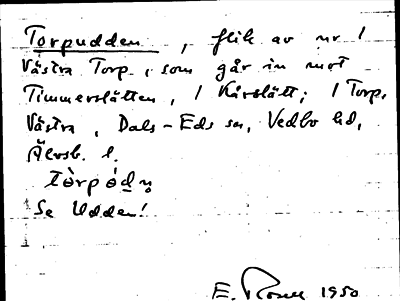 Torpudden, flik av nr 1
Västra Torp, som går in mot
Timmerslätten, 1 Kårslätt; 1 Torp,
Västra, Dals-Eds sn, Vedbo hd,
Älvsb. l.
Se Udden!
E. 1950